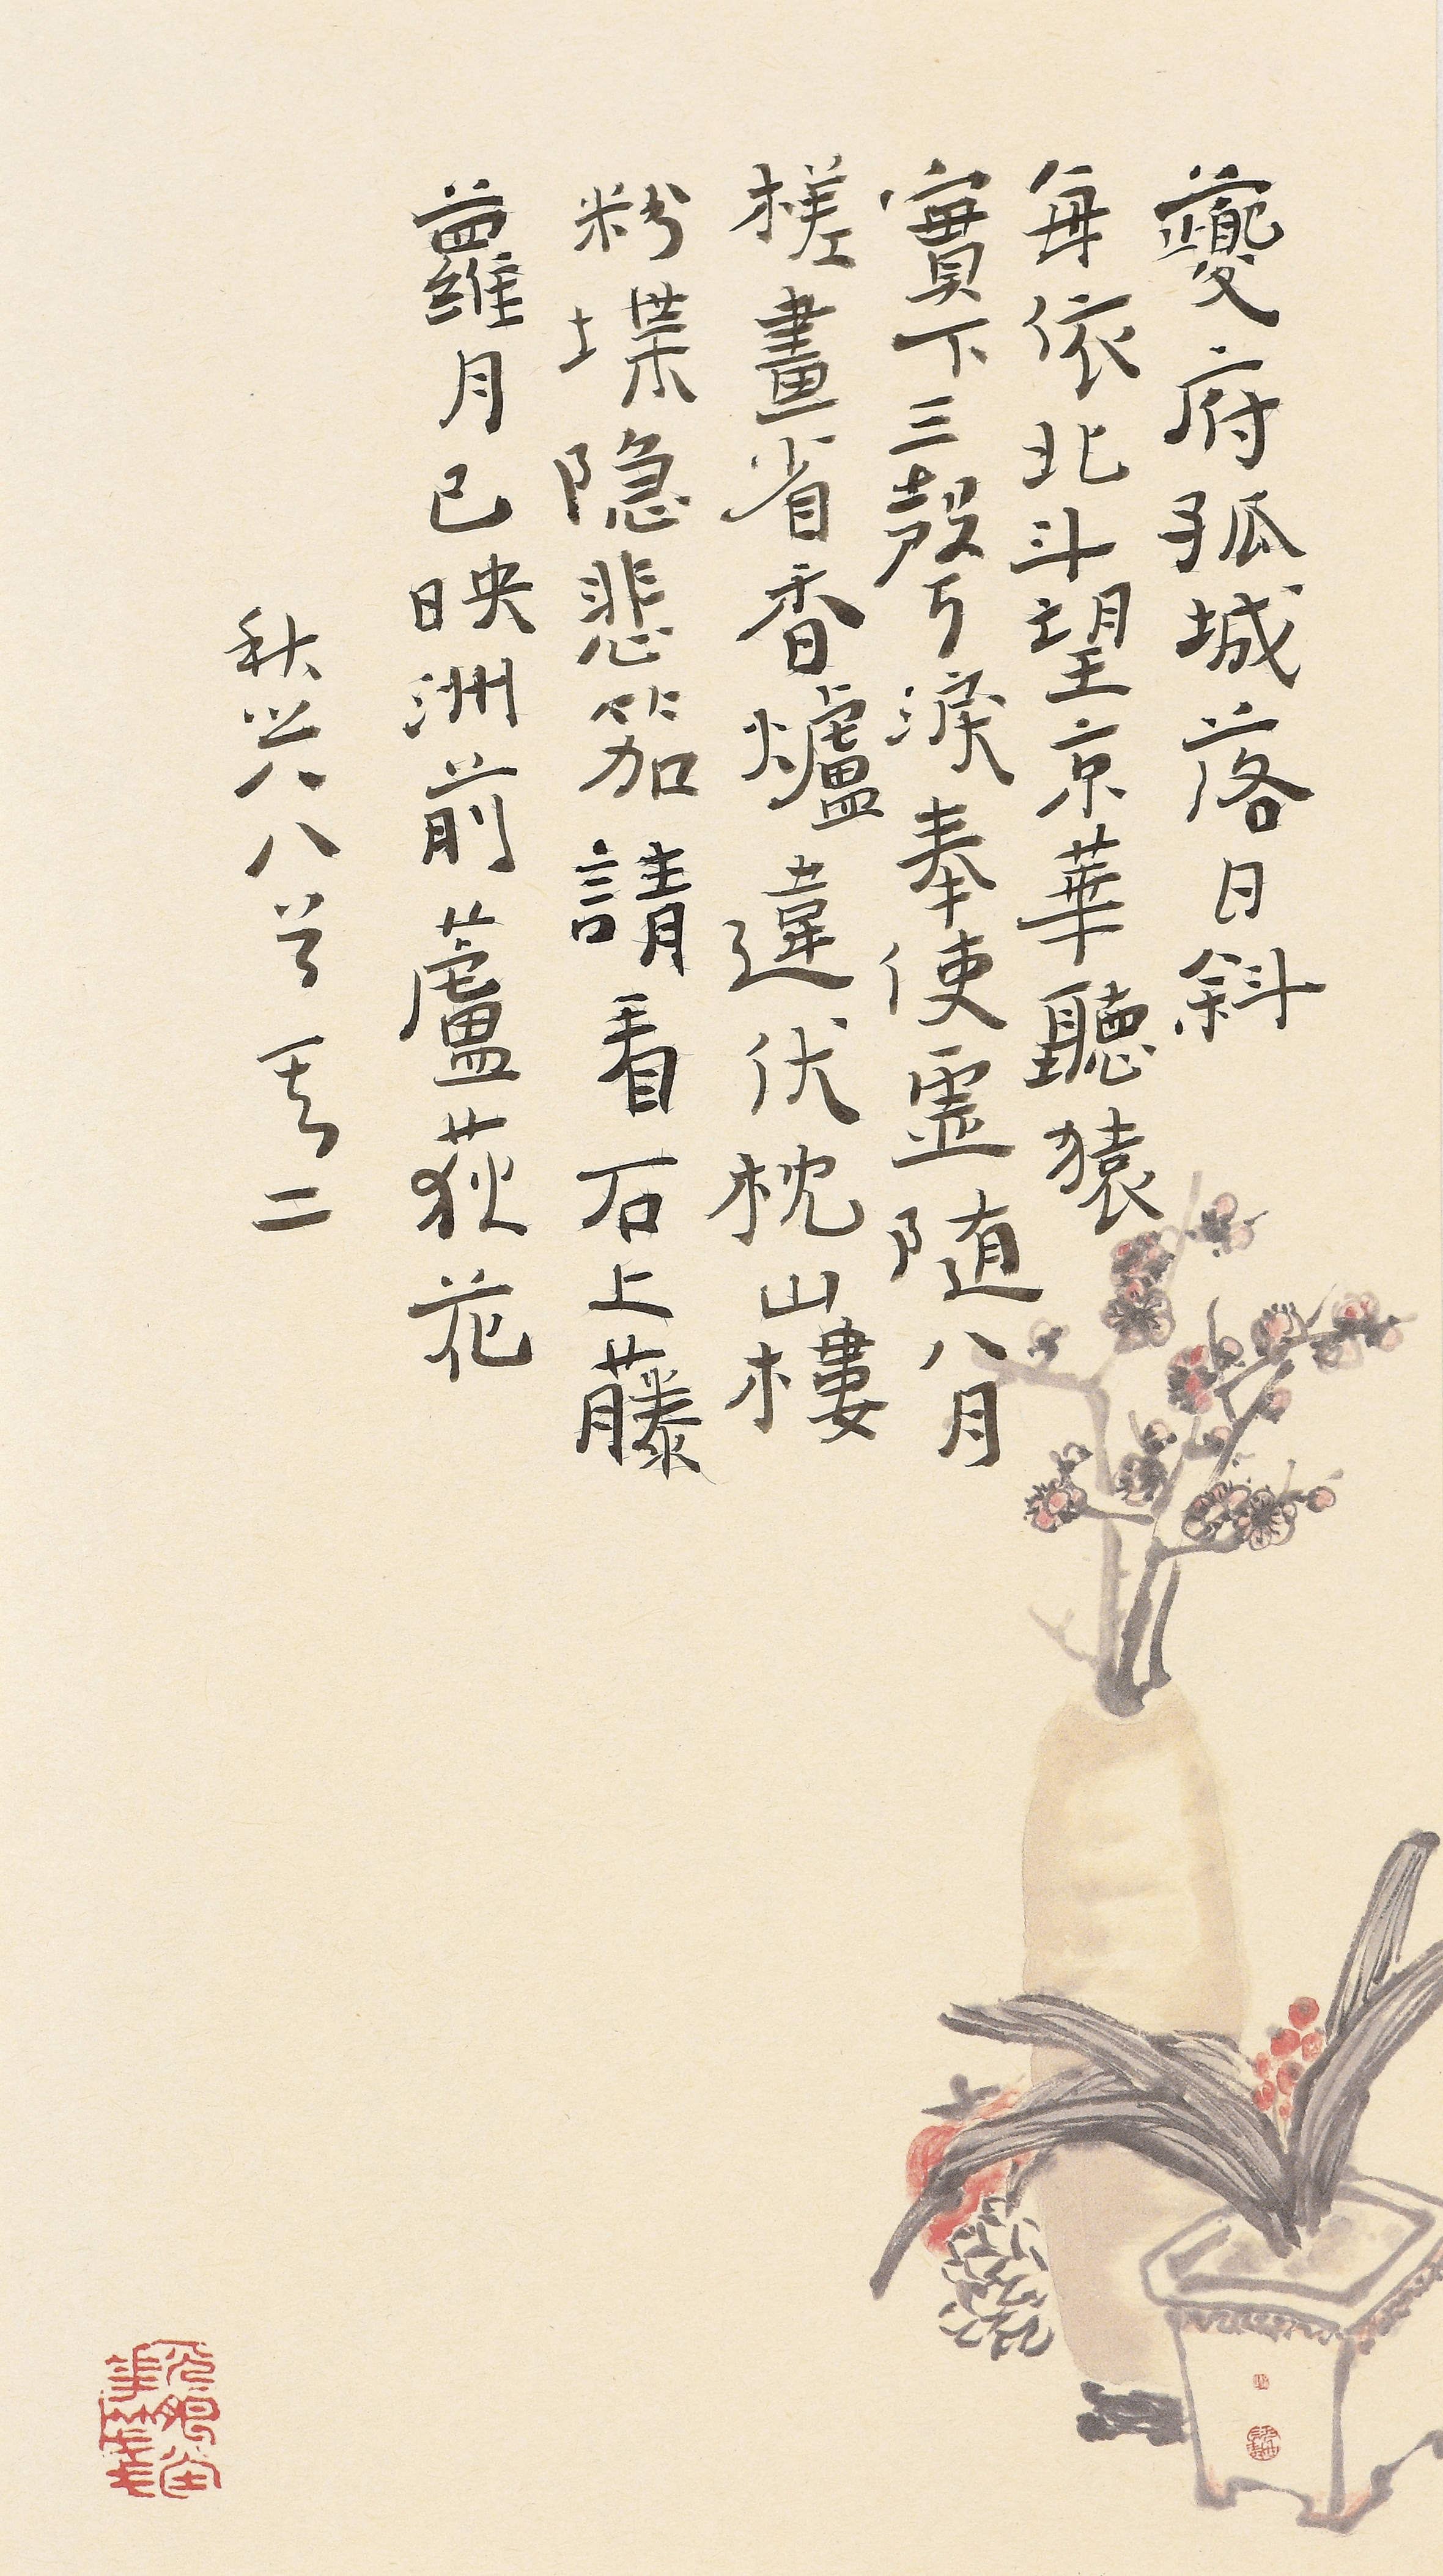 夔府孤城落日斜
每依北斗望京華聽猿
實下三聲淚奉使虛随八月
槎畫省香爐違伏枕山樓
粉堞隐悲笳請看石上藤
蘿月已映洲前蘆荻花
秋兴八首其二